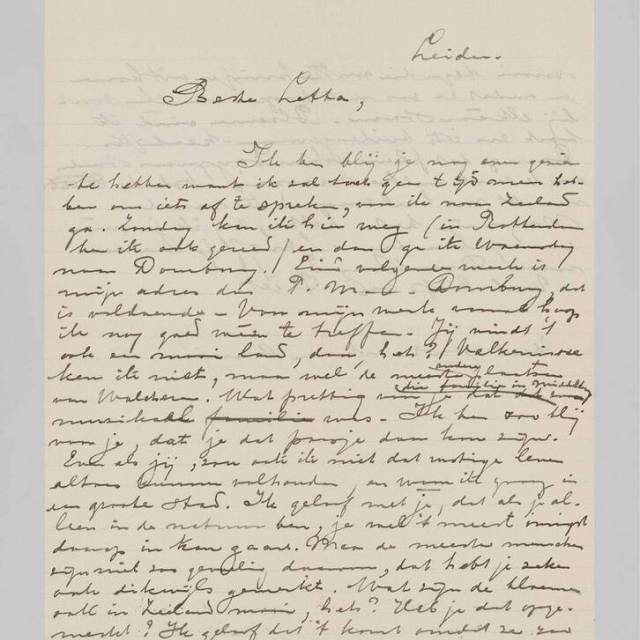 Leiden.
Beste Letta,
Ik ben blij je nog even gezien
te hebben want ik zal toch geen tijd meer heb-
ben om iets af te spreken, voor ik naar Zeeland
ga. Zondag ben ik hier weg (in Rotterdam
ben ik ook gereed) en dan ga ik Woensdag
naar Domburg. Eind volgende week is
mijn adres dus P. M. - Domburg, dat
is voldoende - Voor mijn werk hoop
ik nog goed weer te treffen. Jij vindt 't
ook een mooi land, daar, hè? Valkenisse
ken ik niet, maar wel de meeste andere plaatsen
van Walcheren. Wat prettig voor je dat die familie in Middelb
muzikaal familie was - Ik ben zoo blij
voor je, dat je dat poosje daar kon zijn.
Even als jij, zou ook ik niet dat rustige leven
altoos kunnen volhouden, en woon ik graag in
een groote stad. Ik geloof met je, dat als je al-
leen in de natuur ben, je wel 't meest innigst
daarop in kan gaan. Maar de meeste menschen
zijn niet zoo gevoelig daarvoor, dat hebt je zeker
ook dikwijls gemerkt. Wat zijn de bloemen
ook in Zeeland mooi, hè? Heb je dat opge-
merkt? Ik geloof dat 't komt omdat ze zoo